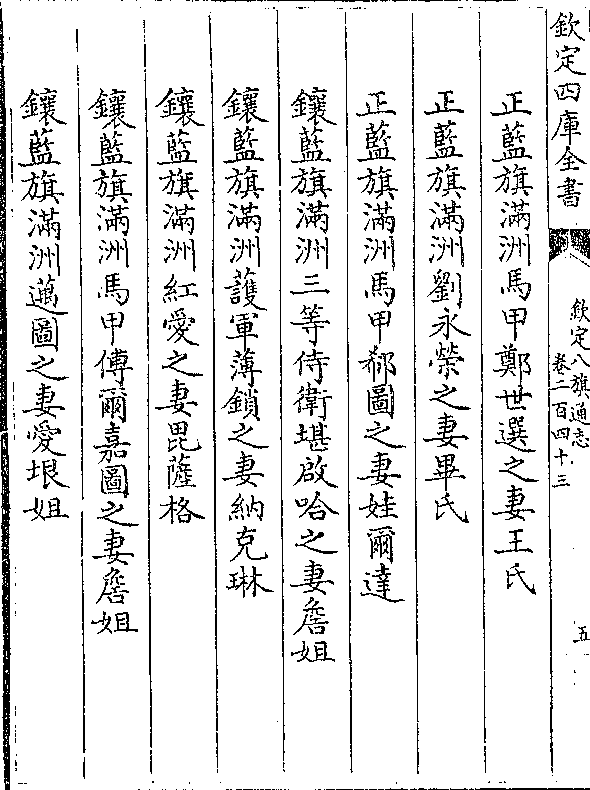 欽定四庫全書
欽定八旗通志
卷二百四十三
五
正藍旗滿洲馬甲鄭世選之妻王氏
正藍旗滿洲劉永榮之妻畢氏
正藍旗滿洲馬甲郗圖之妻娃爾達
鑲藍旗滿洲三等侍衛堪啟哈之妻詹姐
鑲藍旗滿洲護軍薄鎖之妻納克琳
鑲藍旗滿洲紅愛之妻毘薩格
鑲藍旗滿洲馬甲傅爾嘉圖之妻詹姐
鑲藍旗滿洲邁圖之妻愛垠姐